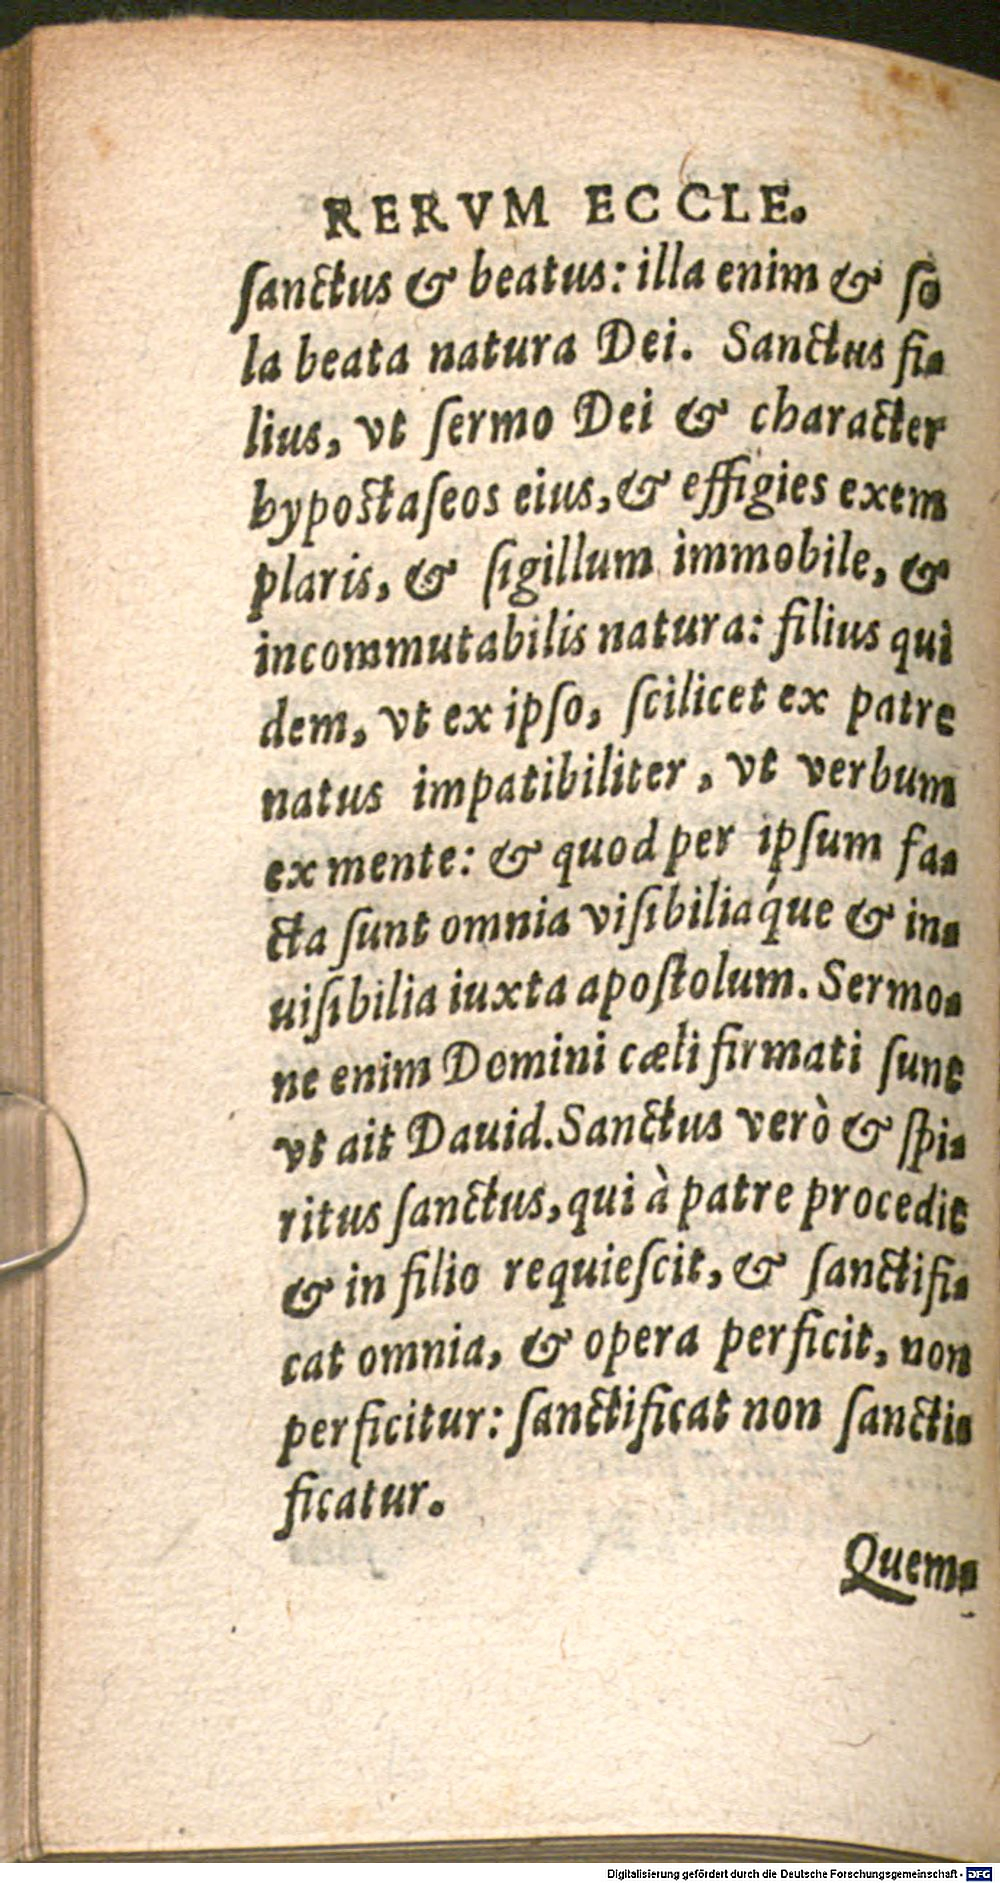 RERVM ECCLE.
ſanctus & beatus: illa enim & ſo
la beata natura Dei. Sanctus fi-
lius, vt ſermo Dei & character
hypoſtaſeos eius, & effigies exem
plaris, & ſigillum ìmmobile, &
incommutabilis natura: filius qui
dem, vt ex ipſo, ſcilicet ex patre
natus impatibiliter, vt verbum
ex mente: & quod per ipſum fa-
cta ſunt omnia viſibiliaq́ue & in-
uiſibilia iuxta apoſtolum. Sermo-
ne enim Domini cæli firmati ſunt
vt ait Dauid. Sanctus verò & ſpi-
ritus ſanctus, qui à patre procedit
& in filio requieſcit, & ſanctifi-
cat omnia, & opera perficit, non
perficitur: ſanctificat non ſancti-
ficatur.
Quem-
Digitalisierung gefördert durch die Deutsche Forschungsgemeinschaft - DFG